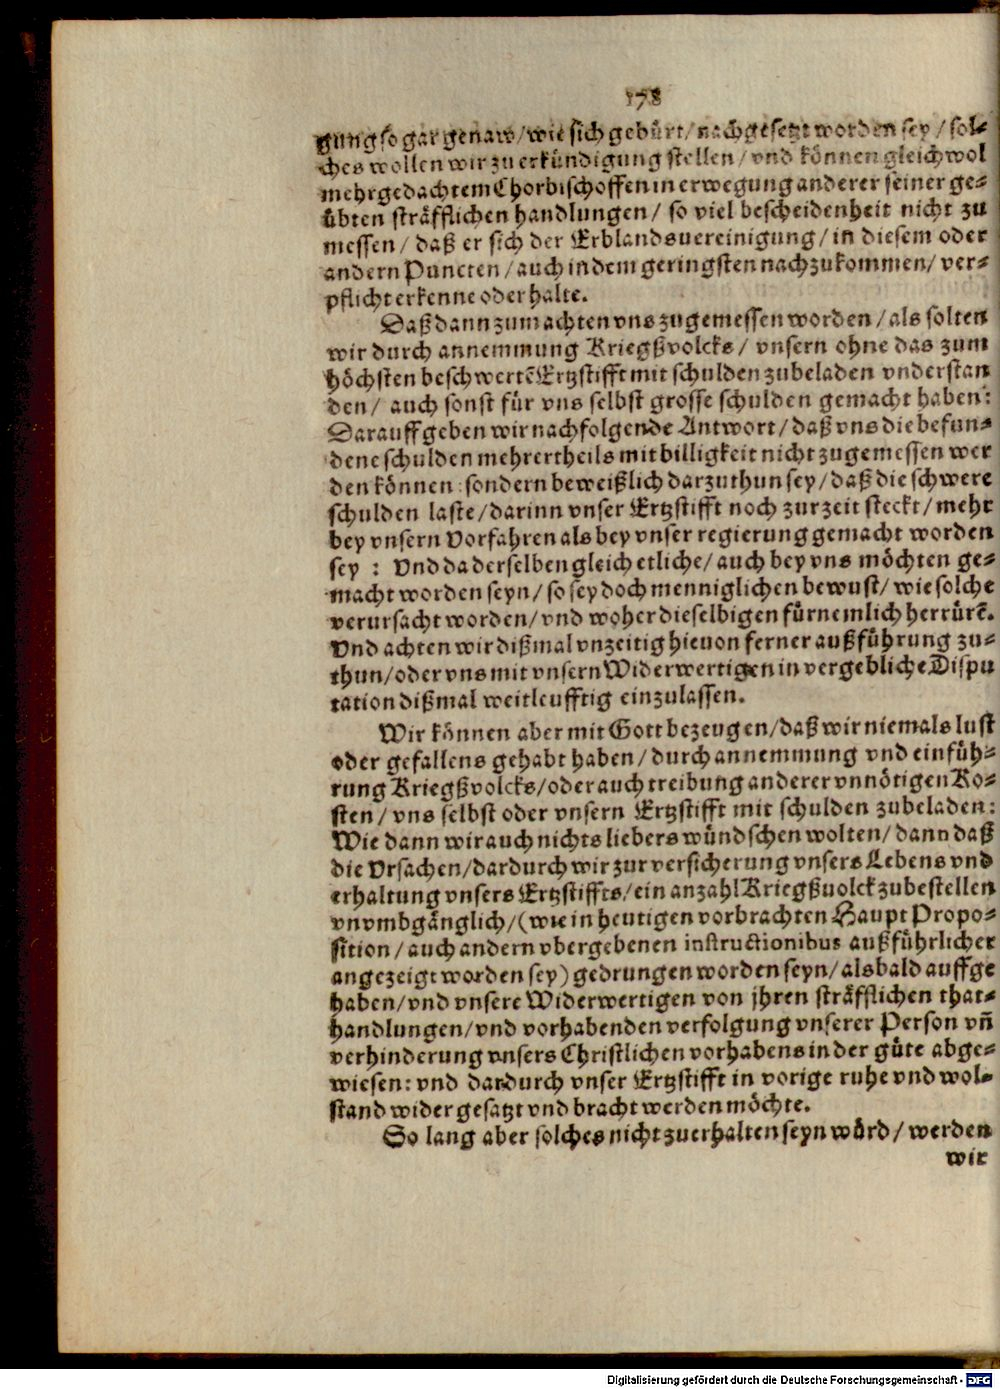 178
gung so gar genaw/ wie sich gebürt/ nachgesetzt worden sey/ sol⸗
ches wollen wir zu erkündigung stellen/ vnd können gleichwol
mehrgedachtem Chorbischoffen in erwegung anderer seiner ge⸗
übten sträfflichen handlungen/ so viel bescheidenheit nicht zu
messen/ daß er sich der Erblandsuereinigung/ in diesem oder
andern Puncten/ auch in dem geringsten nachzukommen/ ver⸗
pflicht erkenne oder halte.
Daß dann zum achten vns zugemessen worden/ als solten
wir durch annemmung Kriegßvolcks/ vnsern ohne das zum
höchsten beschwertẽ Ertzstifft mit schulden zubeladen vnderstan
den/ auch sonst für vns selbst grosse schulden gemacht haben:
Darauff geben wir nachfolgende Antwort/ daß vns die befun⸗
dene schulden mehrertheils mit billigkeit nicht zugemessen wer
den können: sondern beweißlich darzuthun sey/ daß die schwere
schulden laste/ darinn vnser Ertzstifft noch zur zeit steckt/ mehr
bey vnsern Vorfahren als bey vnser regierung gemacht worden
sey: Vnd da derselben gleich etliche/ auch bey vns möchten ge⸗
macht worden seyn/ so sey doch menniglichen bewust/ wie solche
verursacht worden/ vnd woher dieselbigen fürnemlich herrürẽ.
Vnd achten wir dißmal vnzeitig hieuon ferner außführung zu⸗
thun/ oder vns mit vnsern Widerwertigen in vergebliche Dispu
tation dißmal weitleufftig einzulassen.
Wir können aber mit Gott bezeugen/ daß wir niemals lust
oder gefallens gehabt haben/ durch annemmung vnd einfüh⸗
rung Kriegßvolcks/ oder auch treibung anderer vnnötigen Ko⸗
sten/ vns selbst oder vnsern Ertzstifft mit schulden zubeladen:
Wie dann wir auch nichts liebers wündschen wolten/ dann daß
die Vrsachen/ dardurch wir zur versicherung vnsers Lebens vnd
erhaltung vnsers Ertzstiffts/ ein anzahl Kriegßuolck zubestellen
vnvmbgänglich/ (wie in heutigen vorbrachten Haupt Propo⸗
sition/ auch andern vbergebenen instructionibus außführlicher
angezeigt worden sey) gedrungen worden seyn/ alsbald auffge
haben/ vnd vnsere Widerwertigen von jhren sträfflichen that⸗
handlungen/ vnd vorhabenden verfolgung vnserer Person vñ
verhinderung vnsers Christlichen vorhabens in der güte abge⸗
wiesen: vnd dardurch vnser Ertzstifft in vorige ruhe vnd wol⸗
stand wider gesatzt vnd bracht werden möchte.
So lang aber solches nicht zuerhalten seyn würd/ werden
wir
Digitalisierung gefördert durch die Deutsche Forschungsgemeinschaft - DFG